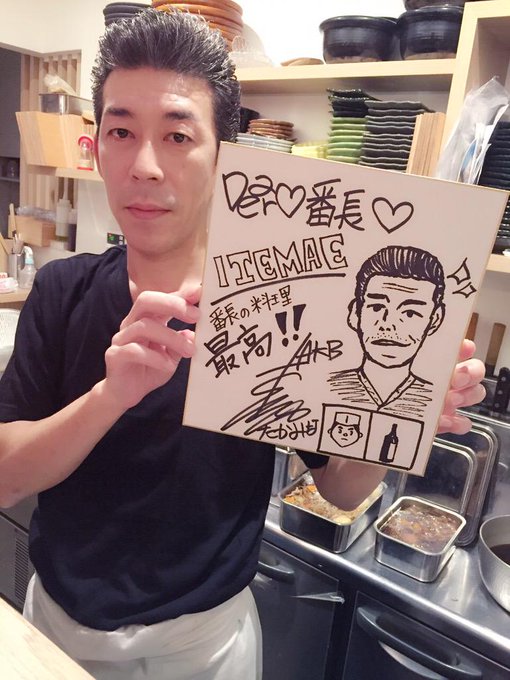 Dear♡番長♡
ITEMAE
番長の料理
最高!!
AKB